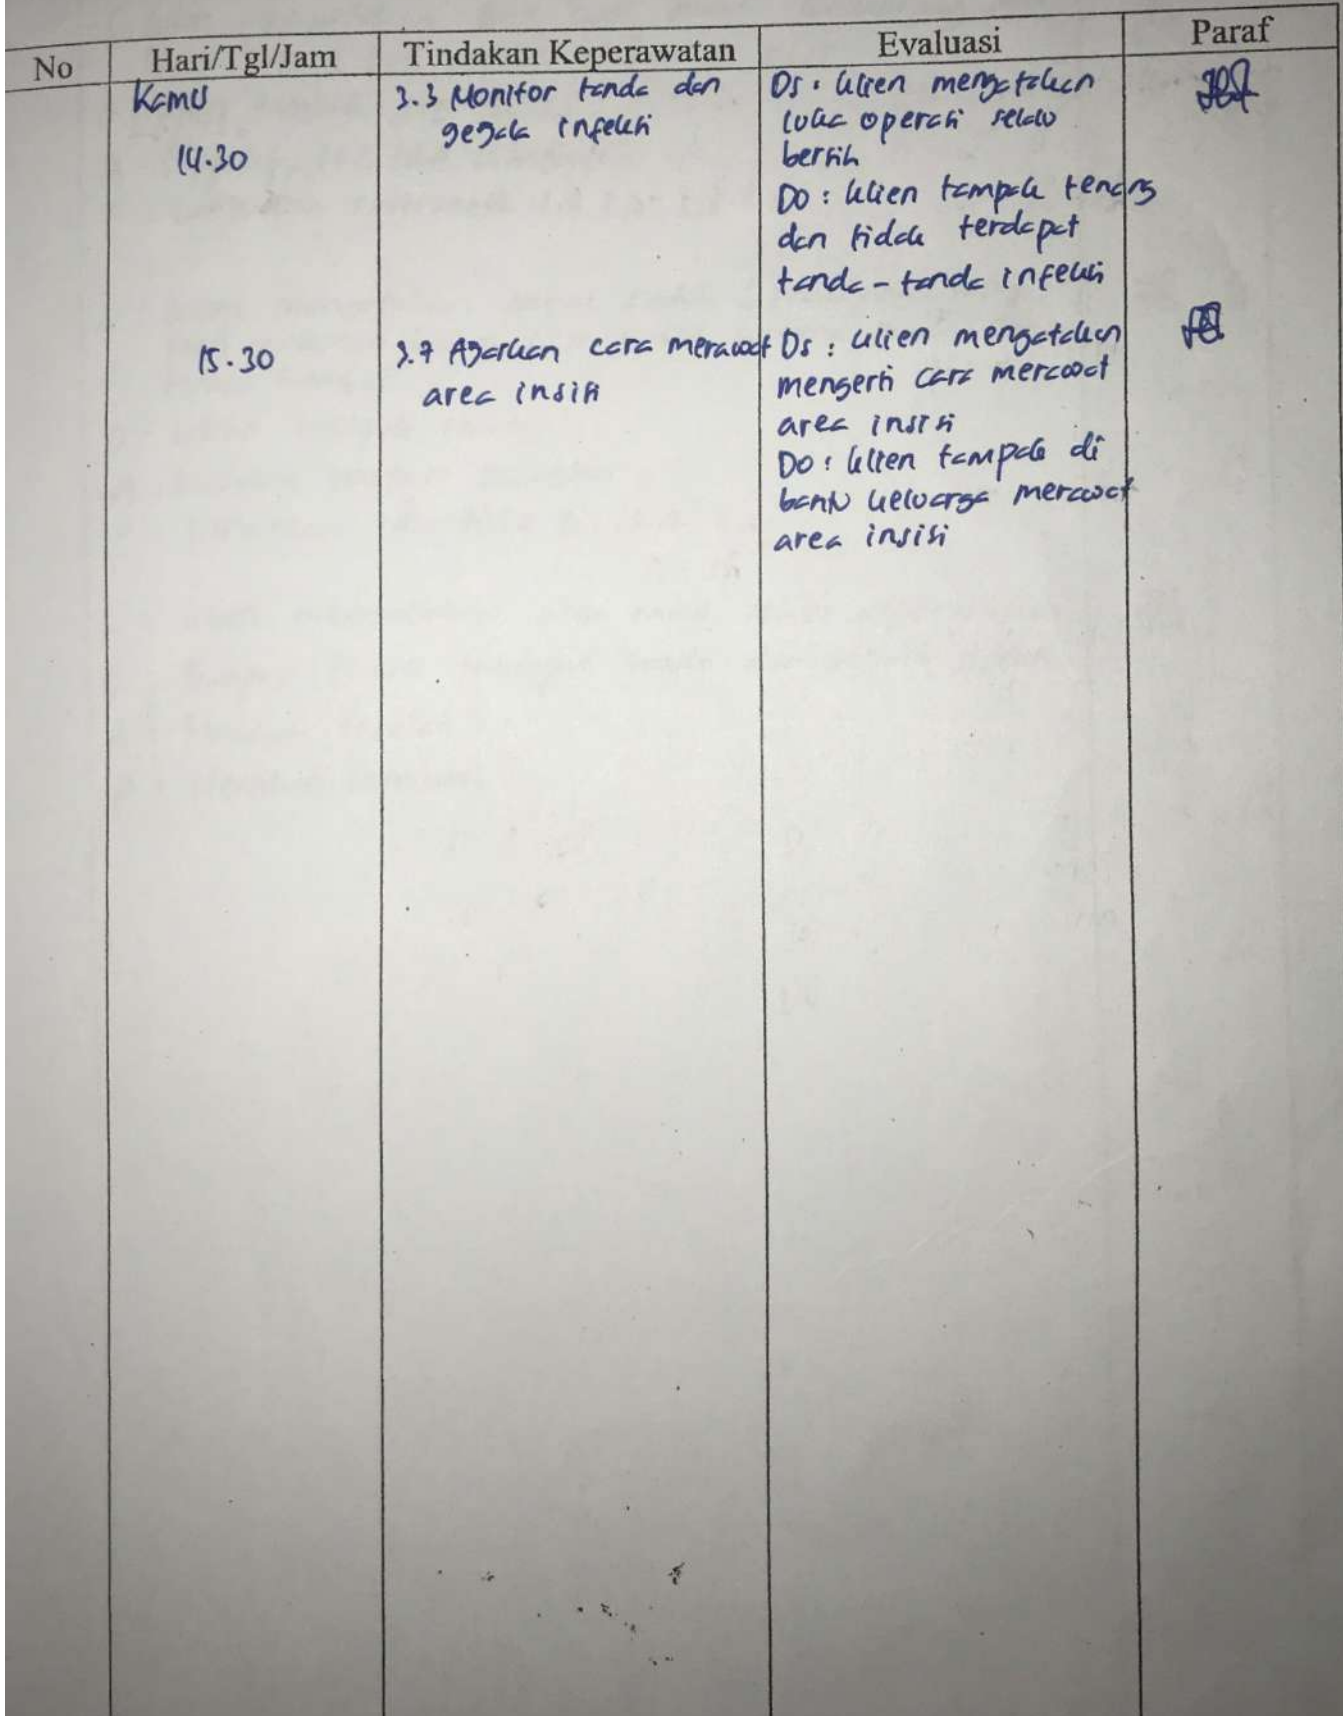 No Hari/Tgl/Jam Tindakan Keperawatan Evaluasi Paraf
Kamis 3.3 Monitor tanda dan Ds : klien mengatakan
gegala infeksi luka operasi selalu
14.30 bersih
Do : klien tampak tenang
dan tidak terdapat
tanda-tanda infeksi
15.30 3.7 Ajarkan cara merawat Ds : klien mengatakan
area insisi mengerti cara merawat
area insisi
Do : klien tampak di
bantu keluarga merawat
area insisi